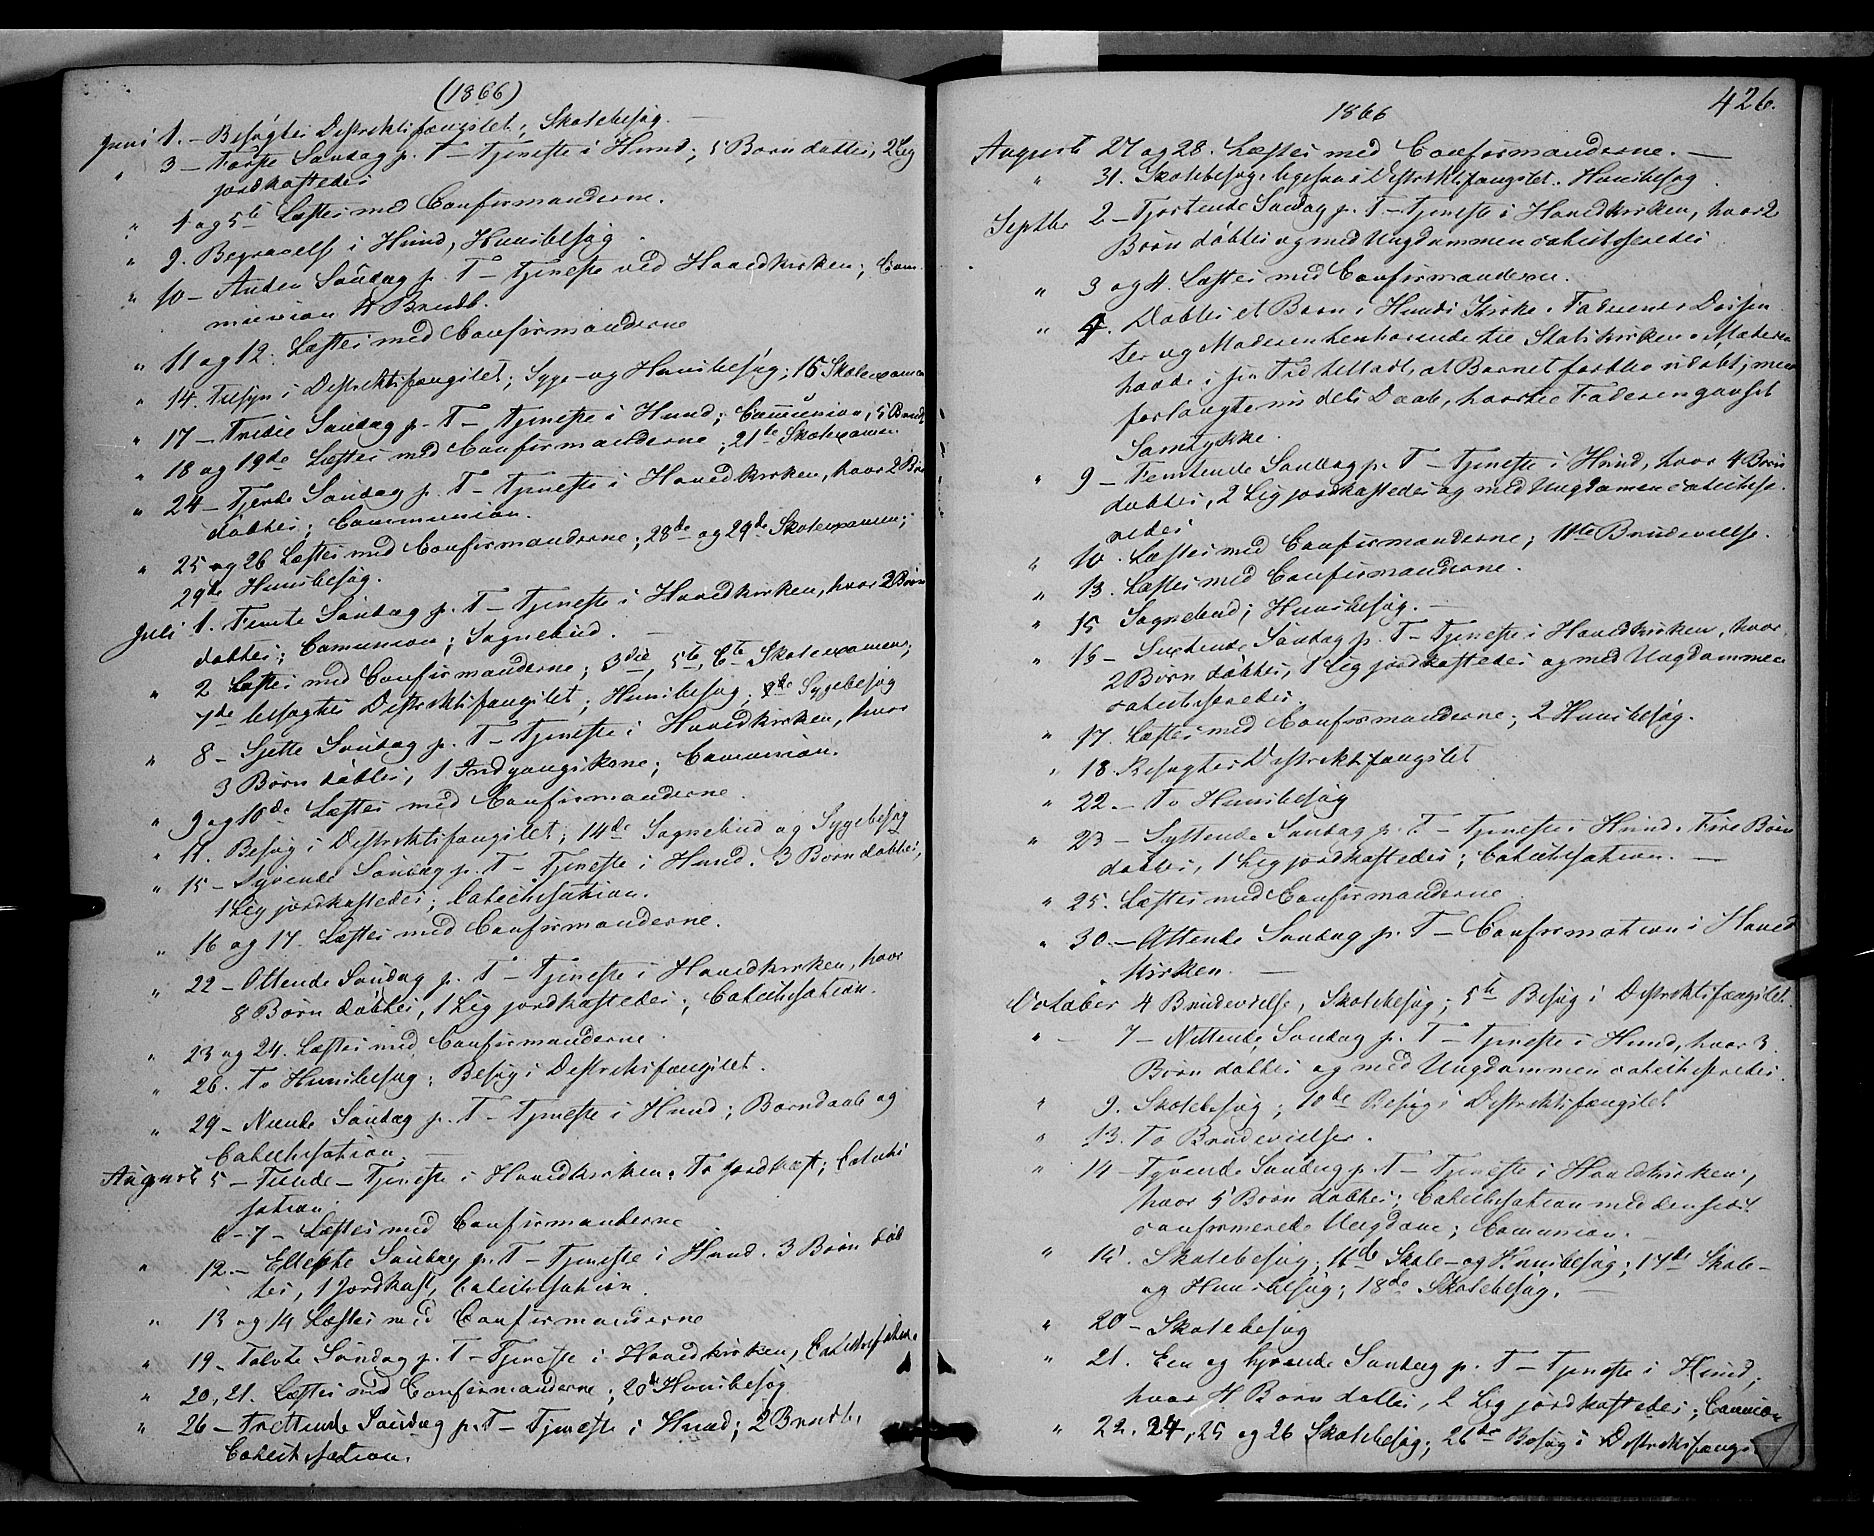 (1866)
Juni 1. – Besøgtes Distriktsfængslet; Skolebesøg. –
" 3 – Første Søndag p. T – Tjeneste i Hund; 5 Børn døbtes, 2 Lig
jordkastedes
" 4 og 5te Læstes med Confirmanderne.
" 9. Begravelse i Hund, Huusbesøg.
" 10 – Anden Søndag p. T – Tjeneste ved Hovedkirken; Com-
munion 4 Brudb.
" 11 og 12. Læstes med Confirmanderne
" 14. Tilsyn i Distriktsfængslet; Syge- og Huusbesøg; 15 Skoleexamen
" 17 – Tredie Søndag p. T – Tjeneste i Hund; Communion, 5 Brudb.
" 18 og 19de Læstes med Confirmanderne; 21te Skoleexamen
" 24 – Fjerde Søndag p. T – Tjeneste i Hovedkirken, hvor 2 Børn
døbtes; Communion.
" 25 og 26 Læstes med Confirmanderne; 28de og 29de Skoleexamen;
29de Huusbesøg.
Juli 1. Femte Søndag p. T – Tjeneste i Hovedkirken, hvor 2 Børn
døbtes; Comunion; Sognebud. –
" 2 Læstes med Confirmanderne; 3die, 5te, 6te Skoleexamen;
7de besøgtes Distriktsfængslet; Huusbesøg; 8de Sygebesøg
" 8 – Sjette Søndag p. T – Tjeneste i Hovedkirken, hvor
3 Børn døbtes, 1 Indgangskone; Comunion.
" 9 og 10de Læstes med Confirmanderne.
" 11. Besøg i Distriktsfængslet; 14de Sognebud og Sygebesøg
" 15 – Syvende Søndag p. T – Tjeneste i Hund. 3 Børn døbtes,
1 Lig jordkastedes; Catechisation.
" 16 og 17. Læstes med Confirmanderne.
" 22 – Ottende Søndag p. T – Tjeneste i Hovedkirken, hvor
8 Børn døbtes, 1 Lig jordkastedes; Catechisation.
" 23 og 24. Læstes med Confirmanderne.
" 26. To Huusbesøg; Besøg i Distriktsfængslet.
" 29 – Niende Søndag p. T – Tjeneste i Hund; Barndaab og
Catechisation. –
August 5 – Tiende – Tjeneste i Hovedkirken; To Jordkast; Catechi
sation
6 – 7 – Læstes med Confirmanderne
" 12. – Ellevte Søndag p. T – Tjeneste i Hund. 3 Børn døb
tes, 1 Jordkast, Catechisation.
" 13 og 14 Læstes med Confirmanderne
" 19 – Tolvte Søndag p. T – Tjeneste i Hovedkirken, Catechisation.
" 20, 21. Læstes med Confirmanderne; 20de Huusbesøg
" 26 – Trettende Søndag p. T – Tjeneste i Hund; 2 Brudb.,
Catechisation.
1866
426.
August 27 og 28. Læstes med Confirmanderne. –
" 31. Skolebesøg, ligesaa i Distriktsfængslet. Huusbesøg.
Septbr 2 – Fjortende Søndag p. T – Tjeneste i Hovedkirken, hvor 2
Børn døbtes og med Ungdommen catechiseredes
" 3 og 4. Læstes med Confirmanderne.
" 4. Døbtes et Barn i Hunds Kirke. Faderen Dissen
ter og Moderen henhørende til Statskirken. Moderen
havde i sin Tid tilladt, at Barnet forblev udøbt, men
forlangte nu dets Daab, hvortil Faderen gav sit
Samtykke.
" 9 – Femtende Søndag p. T – Tjeneste i Hund, hvor 4 Børn
døbtes, 2 Lig jordkastedes og med Ungdomen catechise-
redes
" 10. Læstes med Confirmanderne; 11te Brudevielse.
" 13. Læstes med Confirmanderne.
" 15 Sognebud; Huusbesøg. –
" 16 – Sextende Søndag p. T – Tjeneste i Hovedkirken, hvor
2 Børn døbtes, 1 Lig jordkastedes og med Ungdommen
catechiseredes.
" 17. Læstes med Confirmanderne; 2 Huusbesøg.
" 18 Besøgtes Distriktsfængslet
" 22. – To Huusbesøg
" 23 – Syttende Søndag p. T – Tjeneste i Hund. Fire Børn
døbtes, 1 Lig jordkastedes; Catechisation. –
" 25. Læstes med Confirmanderne
" 30. – Attende Søndag p. T – Confirmation i Hoved
kirken. –
October 4 Brudevielse, Skolebesøg; 5te Besøg i Distriktsfængslet.
" – 7 – Nittende Søndag p. T – Tjeneste i Hund, hvor 3
Børn døbtes og med Ungdommen catechiseredes.
" 9. Skolebesøg; 10de Besøg i Distriktsfængslet
" 13. To Brudevielser.
" 14 – Tyvende Søndag p. T – Tjeneste i Hovedkirken,
hvor 5 Børn døbtes; Catechisation med den sidst
confirmerede Ungdom; Comunion. –
" 15. Skolebesøg; 16de Skole- og Huusbesøg; 17de Skole-
og Huusbesøg; 18de Skolebesøg. –
" 20 – Skolebesøg
" 21. Een og tyvende Søndag p. T – Tjeneste i Hund,
hvor 4 Børn døbtes, 2 Lig jordkastedes; Comunion
" 22. 24, 25 og 26 Skolebesøg; 26de Besøg i Distriktsfængs